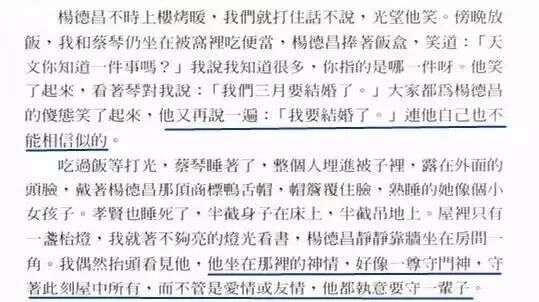 楊德昌不時上樓烤暖，我們就打住話不說，光望他笑。傍晚放
飯，我和蔡琴仍坐在被窩裡吃便當，楊德昌捧著飯盒，笑道：「天
文你知道一件事嗎？」我說我知道很多，你指的是哪一件呀。他笑
了起來，看著琴對我說：「我們三月要結婚了。」大家都為楊德昌
的傻態笑了起來，他又再說一遍：「我要結婚了。」連他自己也不
能相信似的。
吃過飯等打光，蔡琴睡著了，整個人埋進被子裡，露在外面的
頭臉，戴著楊德昌那頂商標鴨舌帽，帽簷覆住臉，熟睡的她像個小
女孩子。孝賢也睡死了，半截身子在床上，半截吊地上。屋裡只有
一盞枱燈，我就著不夠亮的燈光看書，楊德昌靜靜靠牆坐在房間一
角。我偶然抬頭看見他，他坐在那裡的神情，好像一尊守門神，守
著此刻屋中所有，而不管是愛情或友情，他都執意要守一輩子。